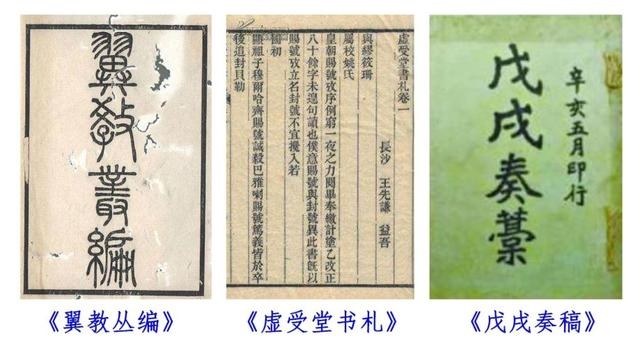 翼教叢編
虛受堂書札卷一
長沙　王先謙　益吾
與繆筱珊
屬校姚氏
皇朝賜號攷序例窮一夜之力閱畢奉繳計塗乙改正
八十餘字未遑句讀也僕意賜號與封號異此書旣以
賜號攷立名封號不宜攙入若
國初
顯祖子穆爾哈齊賜號誠毅巴雅喇賜號篤義皆於卒
後追封貝勒
戊戌奏藁
辛亥五月印行
《翼教丛编》
《虚受堂书札》
《戊戌奏稿》